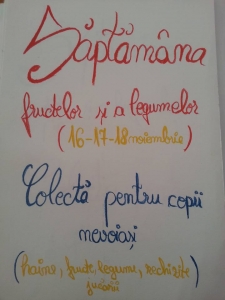 Săptămâna
fructelor și a legumelor
(16-17-18 noiembrie)
Colectă pentru copii
nevoiași
(haine, fructe, legume, rechizite
jucării)